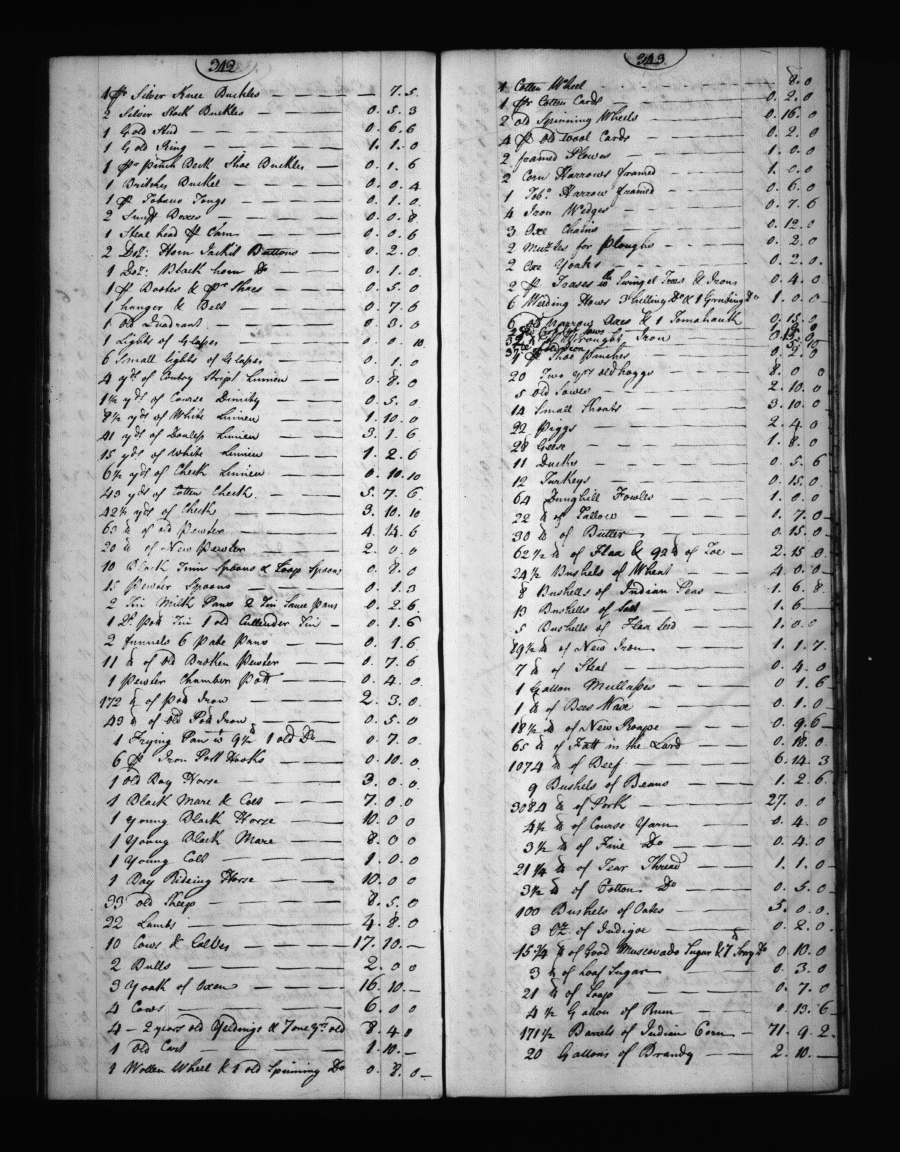 342
1 pr Silver Knee Buckles — 7.5
2 Silver Stock Buckles — 0.5.3
1 Gold Stud — 0.6.6
1 Gold Ring — 1.1.0
1 pr pinch Beck Shoe Buckles 0.1.6
1 Britches Buckel — 0.0.4
1 pr Tobaco Tongs — 0.1.0
2 Snuff Boxes — 0.0.8
1 Steal head — 0.0.6
2 Doz: Horn Jackit Buttons — 0.2.0
1 Doz: Black horn Do — 0.1.0
1 pr Bootes & pr Shoes — 0.5.0
1 hanger & Belt — 0.7.6
1 old Quadrant — 0.3.0
1 Lights of Glasses — 0.0.10
6 Small lights of Glasses — 0.1.0
4 yds of Contry Stript Linnen — 0.8.0
1¼ yds of Course Dimity — 0.5.0
8½ yds of White Linnen — 1.10.0
41 yds of Dowlas Linnen — 3.1.6
15 yds of White Linnen — 1.2.6
6½ yds of Check Linnen — 0.10.10
43 yds of Cotten Check — 5.7.6
42½ yds of Check — 3.10.10
63 lb of old Pewter — 4.14.6
20 lb of New Pewter — 2.0.0
10 Black Tinn Spoons & Soop Spoons 0.7.0
15 Pewter Spoons 0.1.3
2 Tin Milk Pans 2 Tin Sauce pans 0.2.6
1 Qt pott Tin 1 old Cullender Tin — 0.1.6
2 funnels 6 Pate Pans — 0.1.6
11 lb of old Broken Pewter — 0.7.6
1 Pewter Chamber Pott — 0.4.0
172 lb of pott Iron — 2.3.0
43 lb of old Pott Iron — 0.5.0
1 Frying Pan wt 9½ lb 1 old Do — 0.7.0
6 pr Iron Pott Hooks — 0.10.0
1 old Bay Horse — 3.0.0
1 Black Mare & Colt — 7.0.0
1 young Black Horse — 10.0.0
1 Young Black Mare — 8.0.0
1 Young Colt — 1.0.0
1 Bay Rideing Horse — 10.0.0
33 old Sheep — 8.5.0
22 Lambs — 4.8.0
10 Cows & Calves — 17.10.—
2 Bulls — 2.0.0
3 Yoak of Oxen — 16.10.—
4 Cows — 6.0.0
4 — 2 years old Yeldings & 7 one yr old 8.4.0
1 Old Cart — 1.10.—
1 Wollen Wheel & 1 old Spinning Do 0.8.0—
343
1 Cotten Wheel — 8.0
1 pr Cotten Cards — 0.2.0
2 old Spinning Wheels — 0.16.0
4 pr old Wool Cards — 0.2.0
2 framed Plowes — 1.0.0
2 Corn Harrows framed — 1.0.0
1 Tobo Harrow framed — 0.6.0
4 Iron Wedges — 0.7.6
3 Oxe Chains — 0.12.0
2 Muzzles for Ploughs — 0.2.0
2 Oxe Yoaks — 0.2.0
2 pr Trases wth Swingel Trees & Irons 0.4.0
6 Weeding Hows 3 hilling Do & 1 Grubing Do 1.0.0
6 old Narrow Axes & 1 Tomahauk 0.15.0
Wrought Iron
4 pr Shoe Pinches 0.2.0
20 Two yrs old hoggs — 8.0.0
5 old Sowes — 2.10.0
14 Small Shoats — 3.10.0
22 Piggs — 2.4.0
28 Geese — 1.8.0
11 Ducks — 0.5.6
12 Turkeys — 0.15.0
64 Dunghill Fowles — 1.0.0
22 lb of Tallow — 1.7.0
30 lb of Butter — 0.15.0
62½ lb of Flax & 92 lb of Toe — 2.15.0
24½ Bushels of Wheat — 4.0.0
8 Bushells of Indian Peas — 1.6.8
13 Bushells of Salt — 1.6—
5 Bushells of Flax Seed 1.0.0
79½ lb of New Iron — 1.1.7
7 lb of Steal — 0.4.0
1 Gallon Mullasses — 0.1.6
1 lb of Bees Wax — 0.1.0
18½ lb of New Roape — 0.9.6
65 lb of Fatt in the Lard — 0.18.0
1074 lb of Beef — 6.14.3
9 Bushels of Beans — 1.2.6
3084 lb of Pork — 27.0.0
4½ lb of Course Yarn — 0.4.0
3½ lb of Fine Do — 0.4.0
21¼ lb of Tear Thread — 1.1.0
3½ lb of Cotton Do — 0.5.0
100 Bushels of Oates — 5.0.0
3 Oz. of Indigoe — 0.2.0
15¾ lb of Good Muscovado Sugar & 7 lb Do 0.10.0
3 lb of Loaf Sugar — 0.3.0
21 lb of Soap — 0.7.0
4½ Gallon of Rum — 0.13.6
171½ Barels of Indian Corn — 71.9.2
20 Gallons of Brandy — 2.10.—